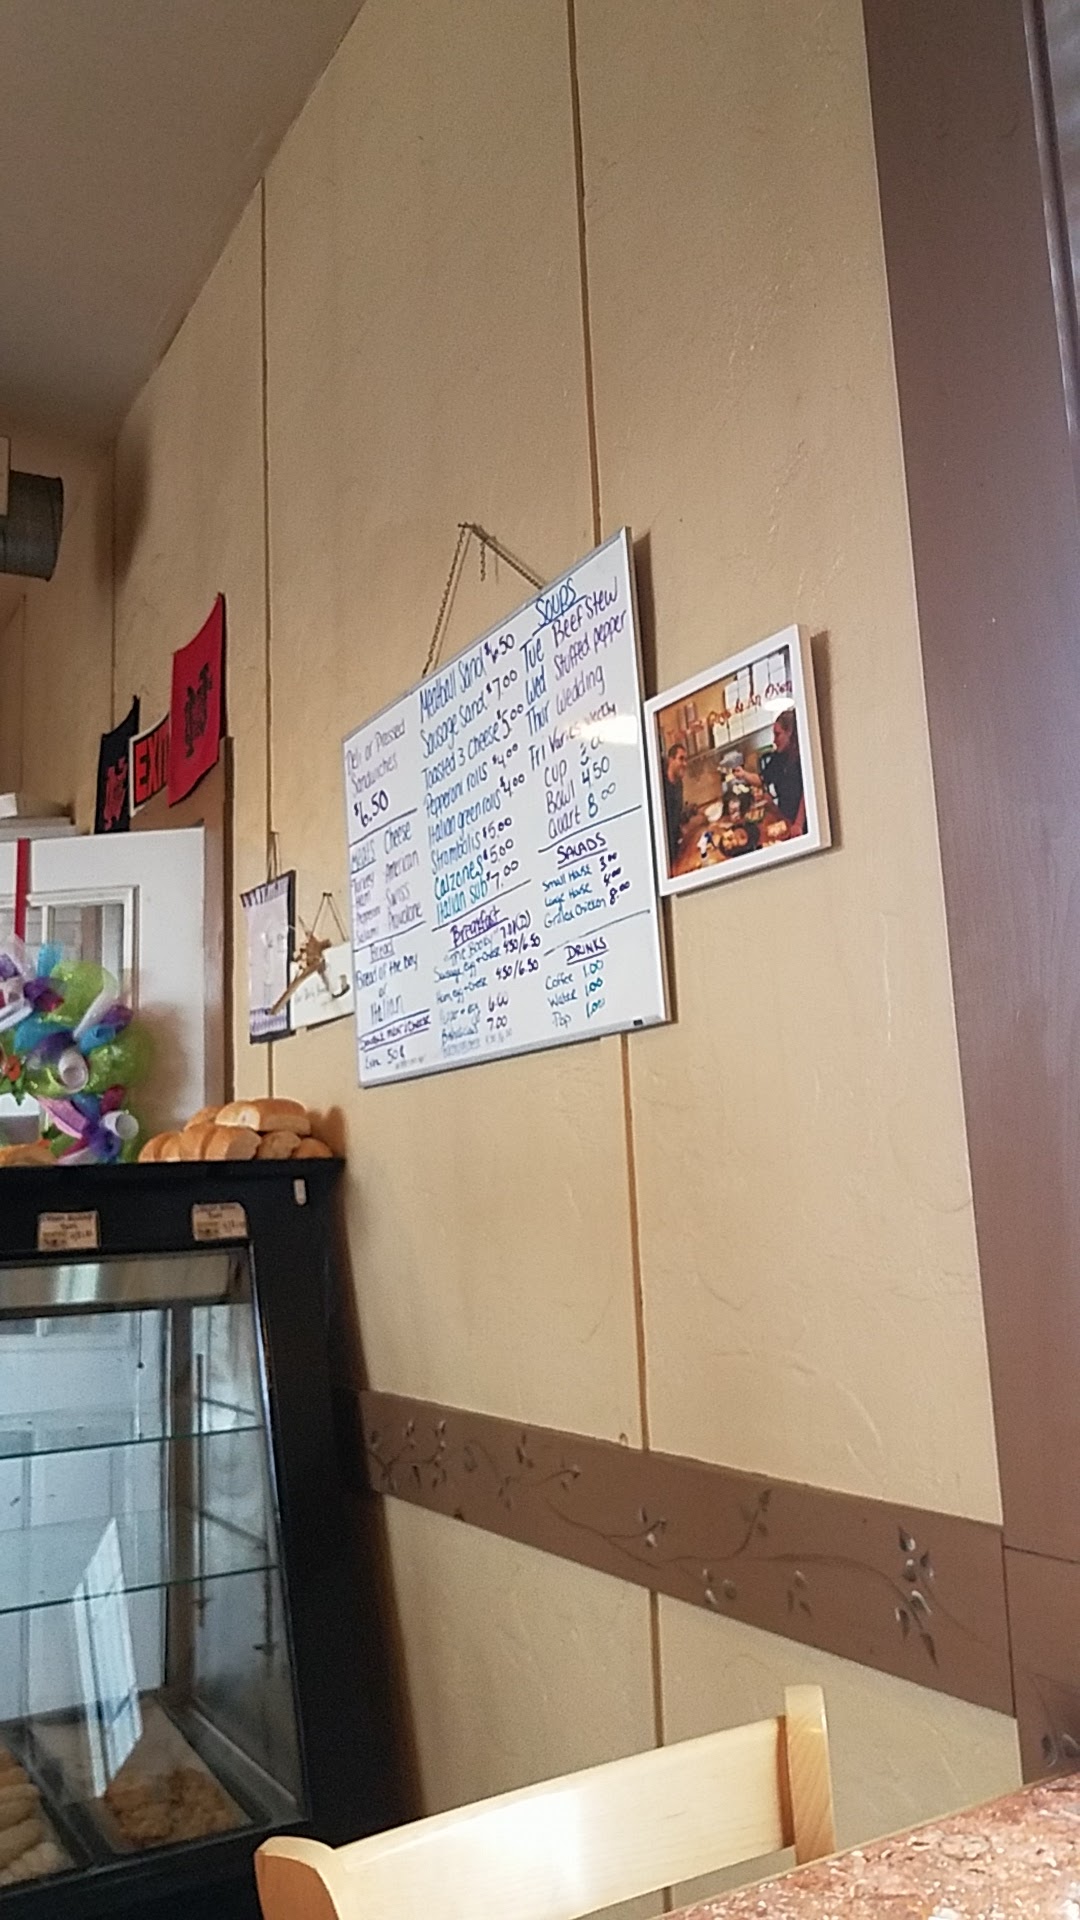 EXI
Deli or Pressed
Sandwiches
$6.50
Meats Cheese
Turkey American
Ham Swiss
Pepperoni Provolone
Salami
Bread
Bread of the Day
or
Italian
Double Meat/Cheese
Extra 50¢
Meatball Sand $6.50
Sausage Sand $7.00
Toasted 3 cheese $5.00
Pepperoni rolls $4.00
Italian green rolls $4.00
Strombolis $5.00
Calzones $5.00
Italian sub $7.00
Breakfast
"The Booby"
Sausage egg + cheese 4.50/6.50
Ham, egg + cheese 4.50/6.50
6.00
7.00
Soups
Tue Beef Stew
Wed Stuffed pepper
Thur Wedding
Fri Varies weekly
Cup
Bowl 4.50
Quart 8.00
Salads
Small House 3.00
Large House 4.00
Grilled Chicken 8.00
Drinks
Coffee 1.00
Water 1.00
Pop 1.00